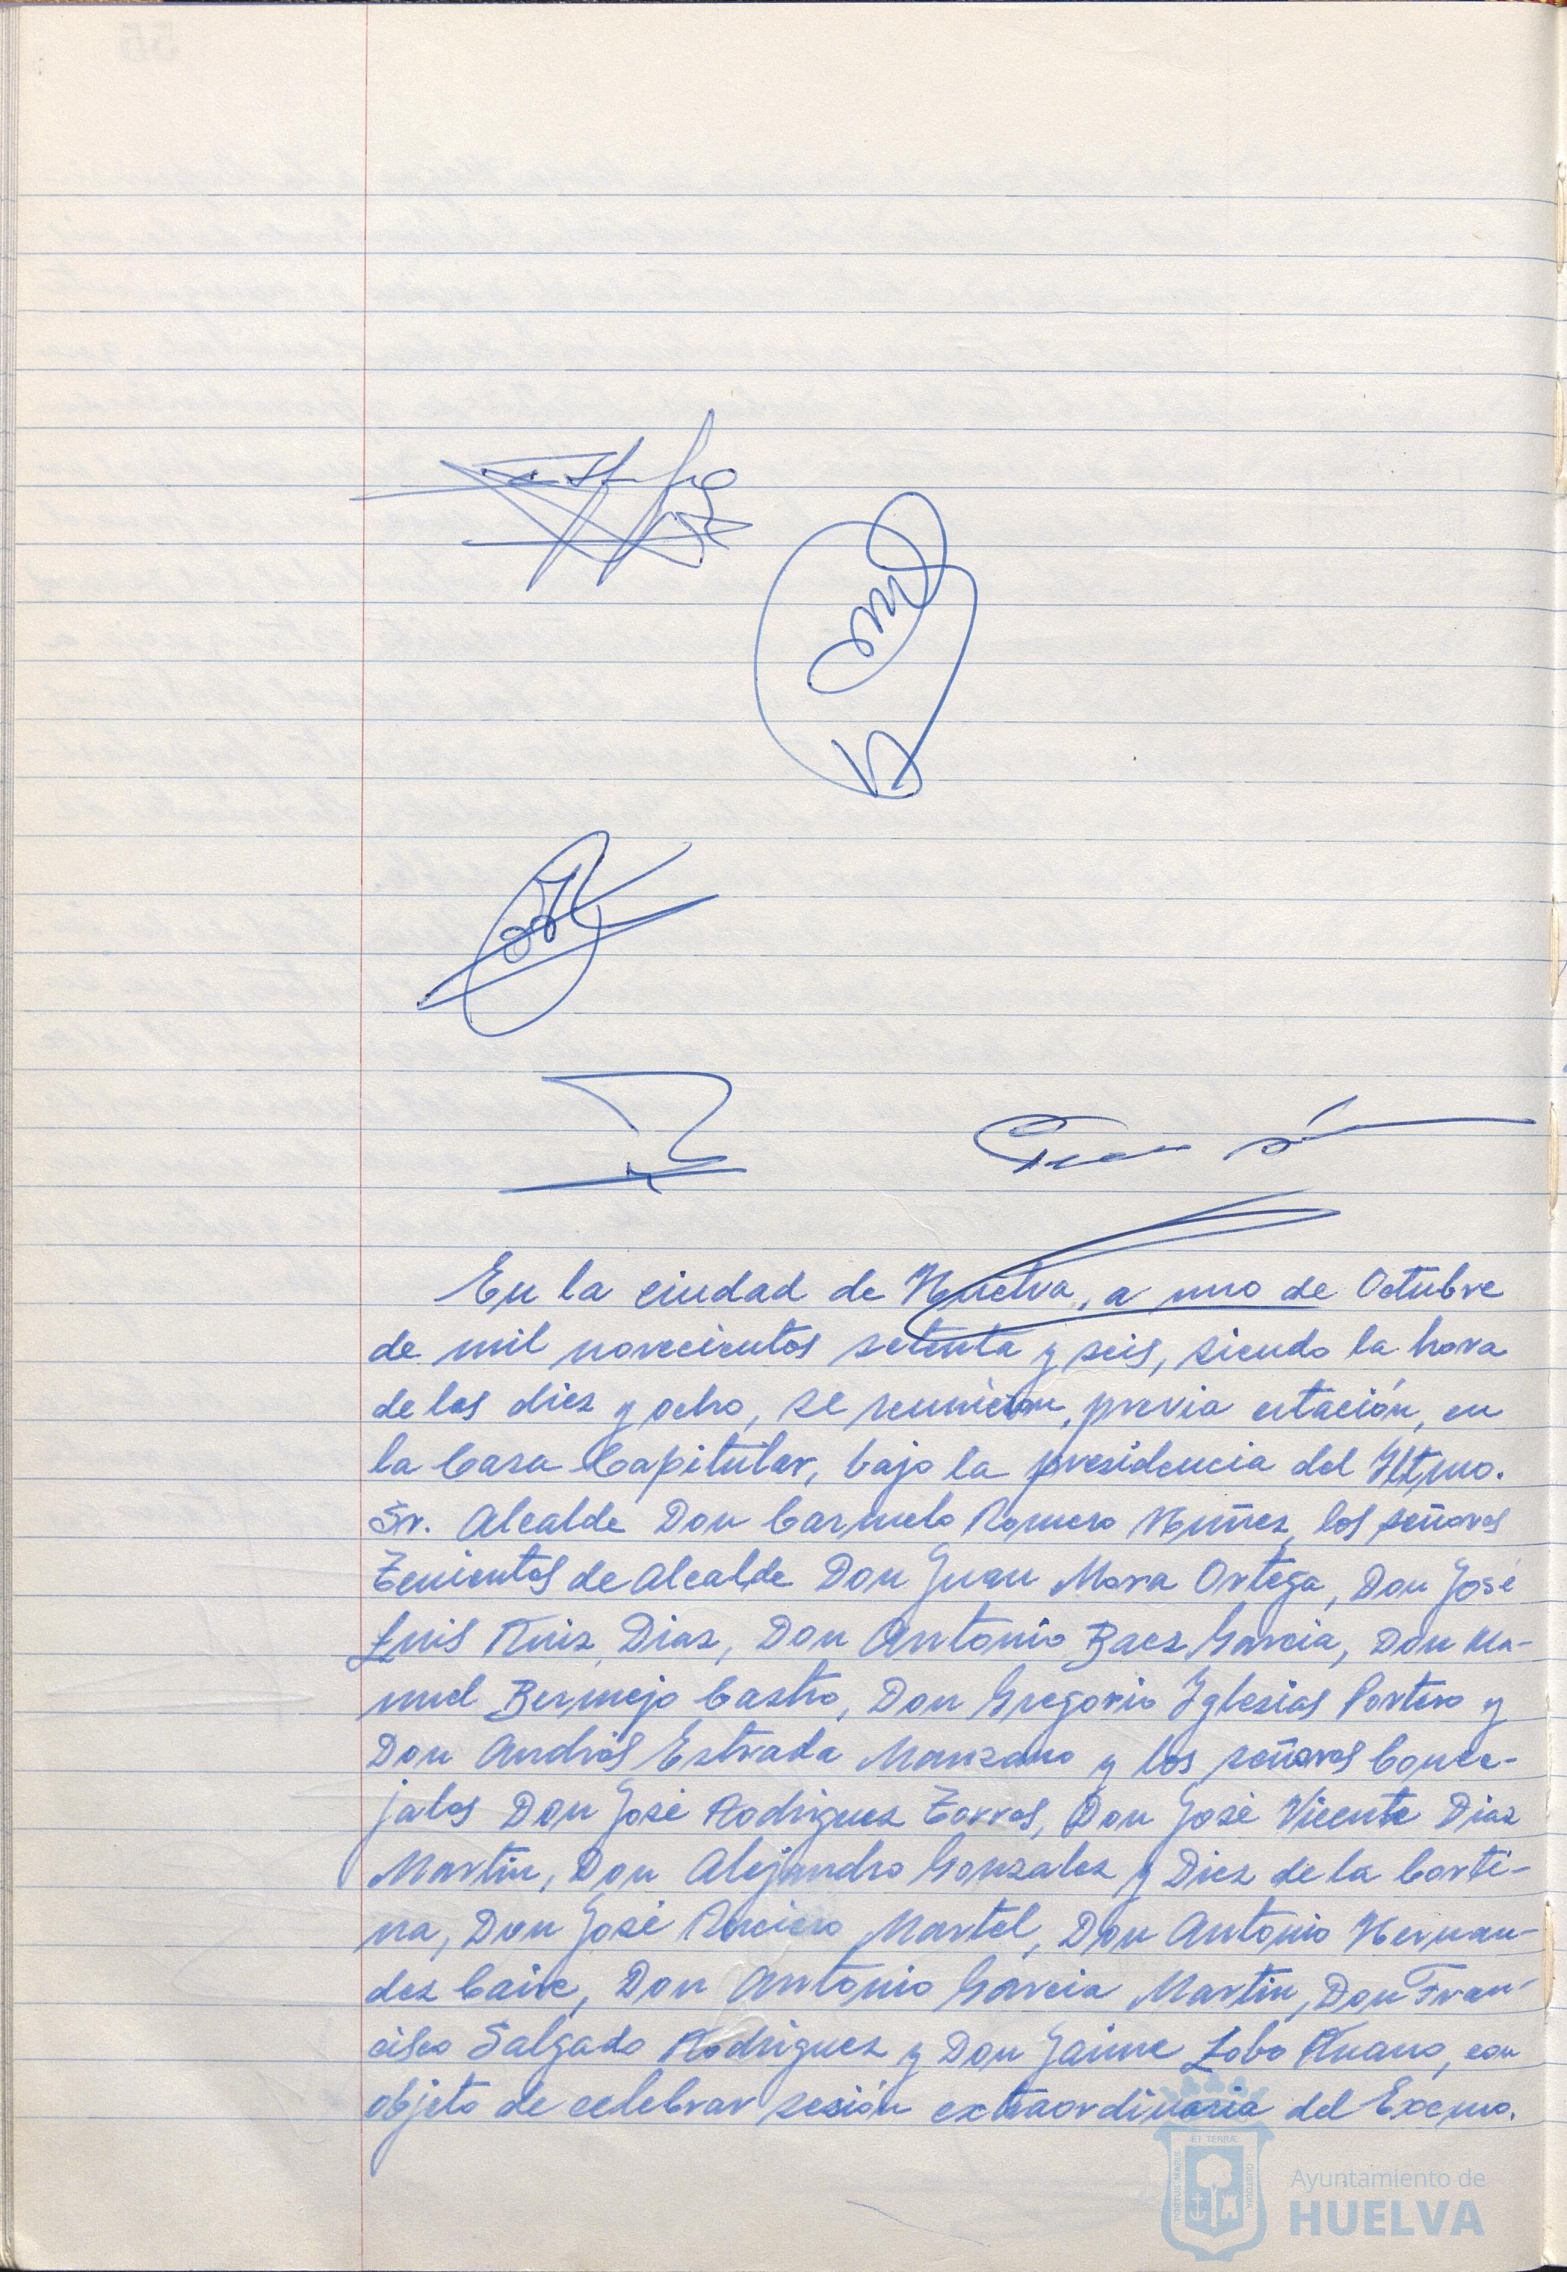 En la ciudad de Huelva, a uno de Octubre
de mil novecientos setenta y seis, siendo la hora
de las diez y ocho, se reunieron, previa citación, en
la Casa Capitular, bajo la presidencia del Iltmo.
Sr. Alcalde Don Carmelo Romero Nuñez, los señores
Tenientes de Alcalde Don Juan Mora Ortega, Don José
Luis Ruiz Diaz, Don Antonio Baez Garcia, Don Ma-
nuel Bermejo Castro, Don Gregorio Iglesias Portero y
Don Andrés Estrada Manzano y los señores Conce-
jales Don José Rodriguez Torres, Don José Vicente Diaz
Martin, Don Alejandro Gonzalez y Diez de la Corti-
na, Don José Martel, Don Antonio Hernan-
dez Caire, Don Antonio Garcia Martin, Don Fran-
cisco Salgado Rodriguez y Don Jaime Lobo Ruano, con
objeto de celebrar sesión extraordinaria del Excmo.
PORTUS MARIS ET TERRAE CUSTODIA
Ayuntamiento de
HUELVA